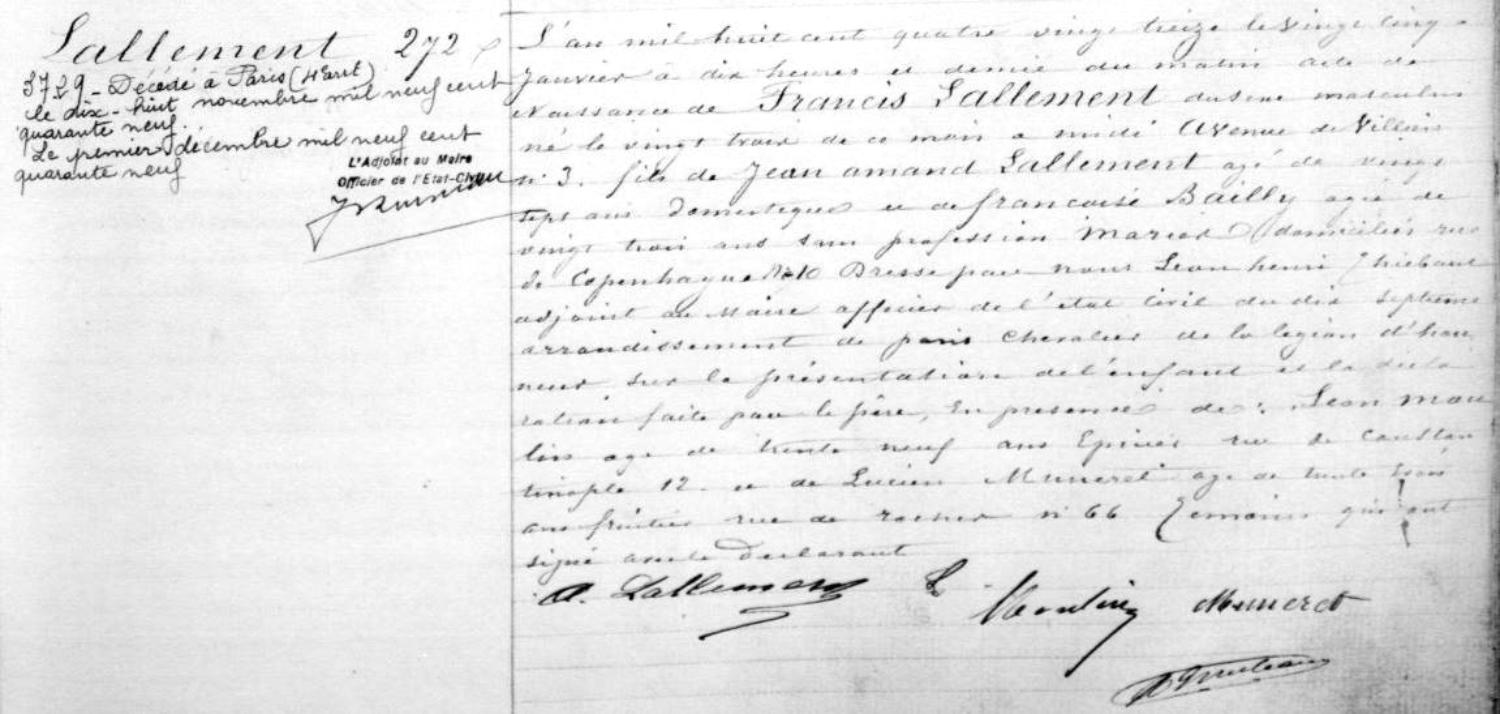 Lallement 272
3729 - Décédé à Paris (4e arrt)
le dix-huit novembre mil neuf cent
quarante neuf.
Le premier décembre mil neuf cent
quarante neuf
L'Adjoint au Maire
Officier de l'Etat-Civil
L'an mil huit cent quatre vingt treize le vingt cinq
Janvier à dix heures et demie du matin acte de
Naissance de Francis Lallement du sexe masculin
né le vingt trois de ce mois a midi Avenue de Villiers
n° 3. fils de Jean amand Lallement agé de vingt
sept ans Domestique et de francoise Bailly agée de
vingt trois ans sans profession Mariés domiciliés rue
de Copenhague N° 10 Dressé par nous Leon henri Thiebaut
adjoint au Maire officier de l'état Civil du dix septieme
arrondissement de paris Chevalier de la légion d'hon
neur sur la présentation de l'enfant et la décla
ration faite par le père, En présence de : Leon Mou
lin age de trente neuf ans Epicier rue de Constan
tinople 12. et de Lucien Muneret age de trente trois
ans fruitier rue de rocher n° 66 Temoins qui ont
signé avec le Declarant
A. Lallement L. Moulin Muneret